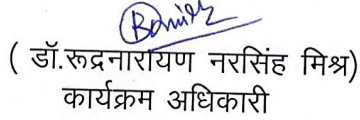 ( डॉ.रूद्रनारायण नरसिंह मिश्र)
कार्यक्रम अधिकारी